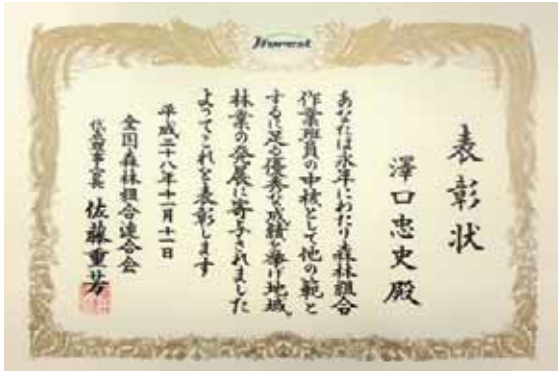 Jforest
表彰状
澤口忠史殿
あなたは永年にわたり森林組合
作業班員の中核として他の範と
するに足る優秀な成績を挙げ地域
林業の発展に寄与されました
よってこれを表彰します
平成二十八年十一月十一日
全国森林組合連合会
代表理事会長 佐藤重芳